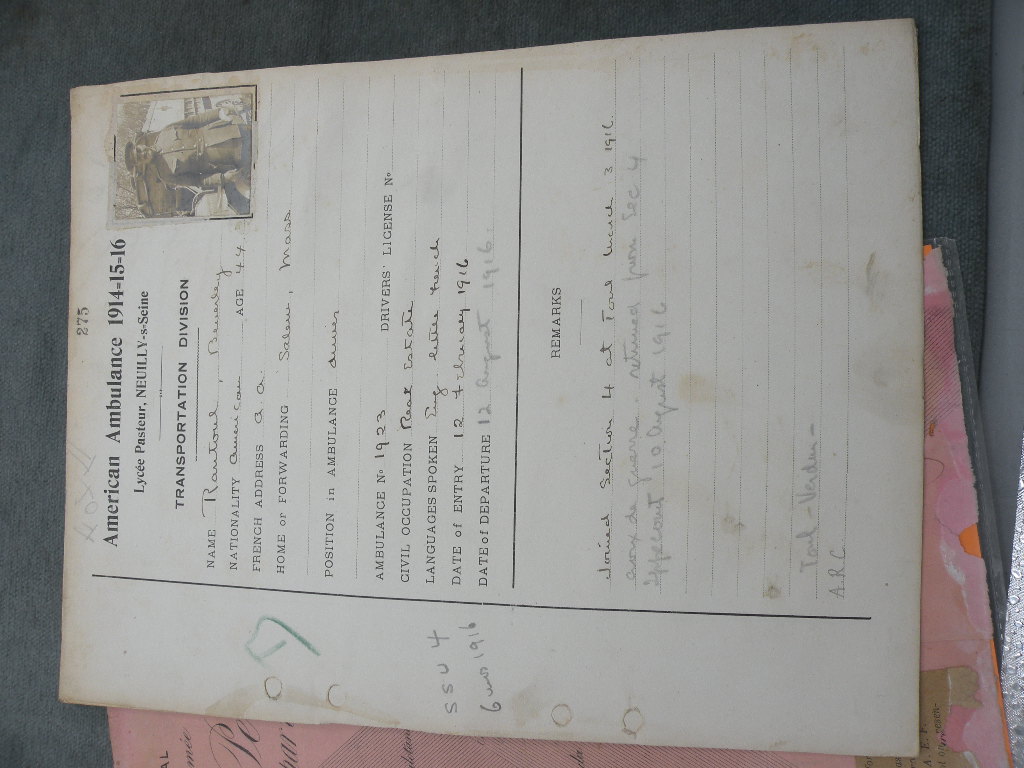 275
American Ambulance 1914-15-16
Lycée Pasteur, NEUILLY-s-Seine
TRANSPORTATION DIVISION
NAME Rantoul, Beverley
NATIONALITY American AGE 44
FRENCH ADDRESS a a
HOME or FORWARDING Salem, Mass
POSITION in AMBULANCE driver
AMBULANCE No 1923 DRIVERS' LICENSE No
CIVIL OCCUPATION Real Estate
LANGUAGES SPOKEN Eng little french
DATE of ENTRY 12 February 1916
DATE of DEPARTURE 12 August 1916.
REMARKS
Joined Section 4 at Toul March 3 1916
croix de guerre. returned from Sec 4
Ippecourt 10 August 1916
Toul - Verdun -
A.R.C.
SSU 4
6 mos 1916